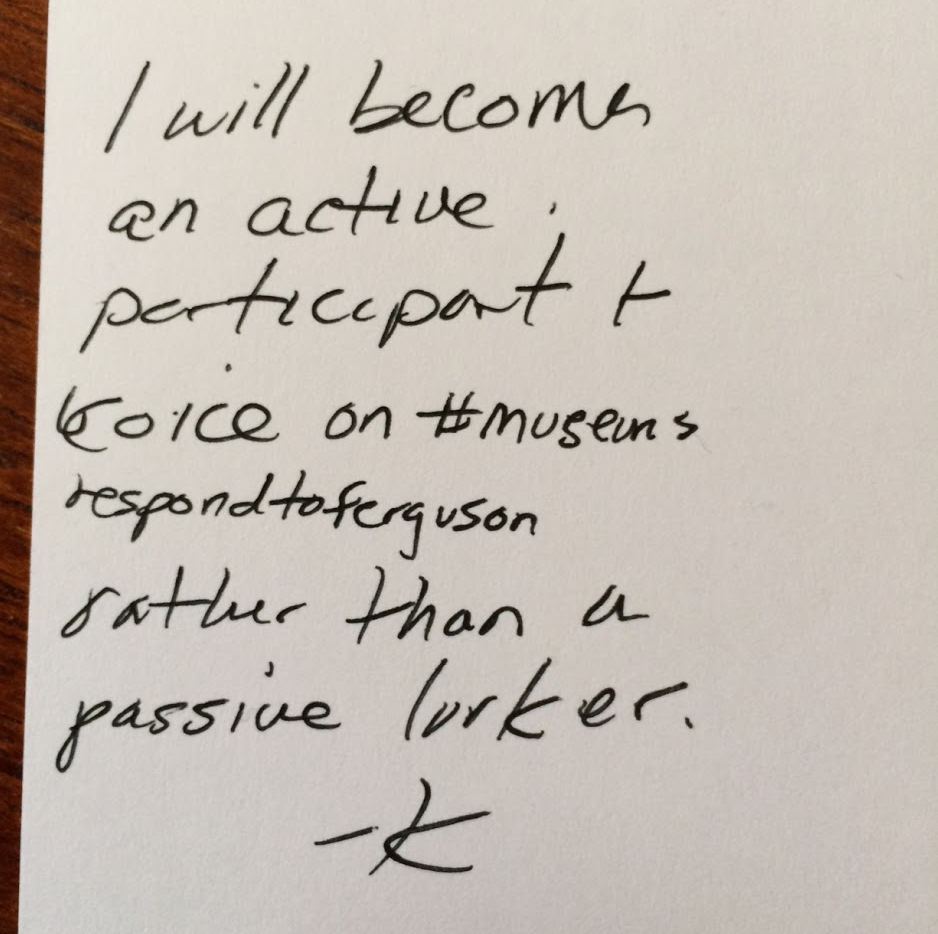 I will become
an active
participant +
voice on #museums
respondtoferguson
rather than a
passive lurker.
-K